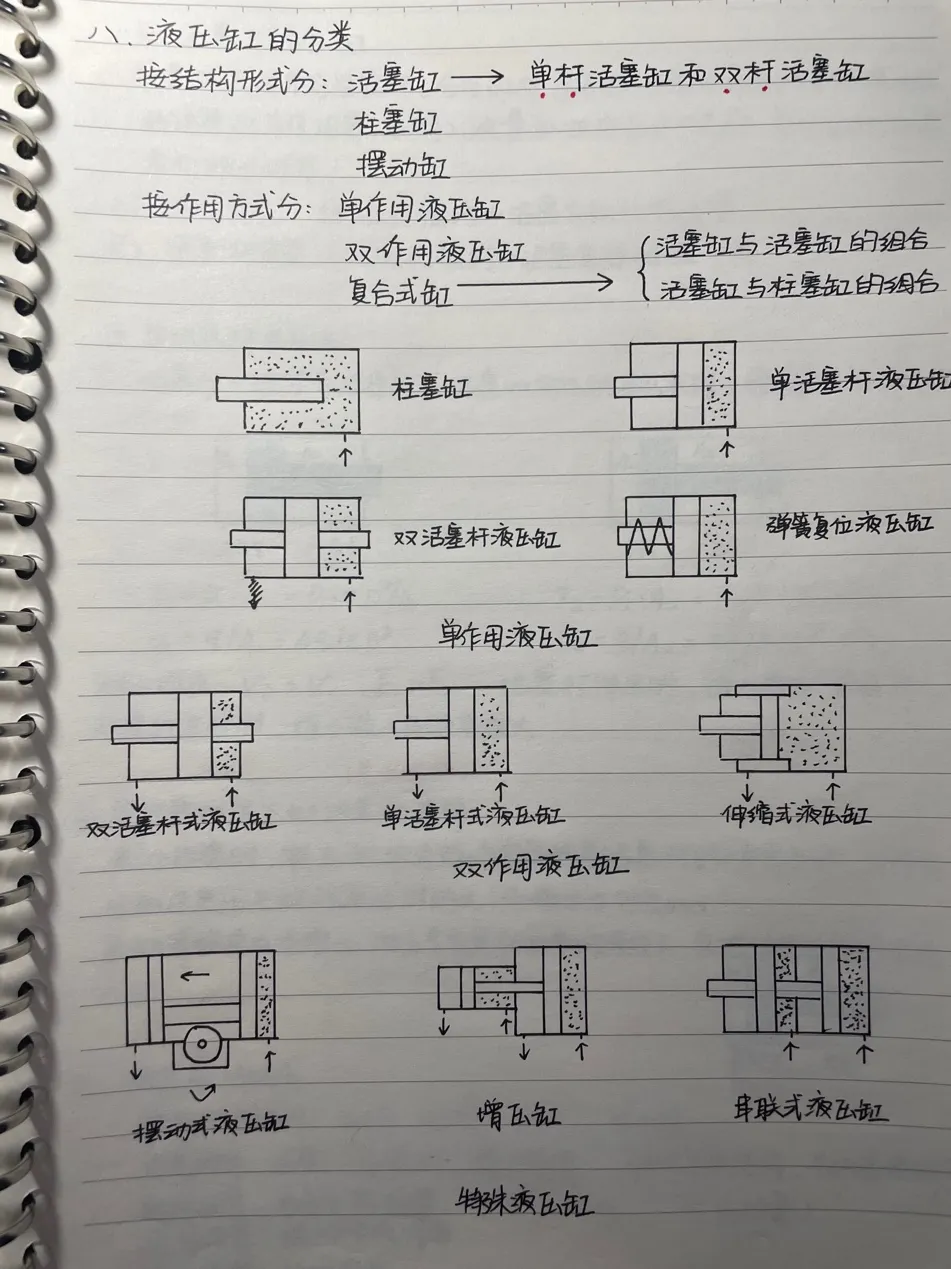 八、液压缸的分类
按结构形式分：活塞缸 → 单杆活塞缸和双杆活塞缸
柱塞缸
摆动缸
按作用方式分：单作用液压缸
双作用液压缸
复合式缸 → { 活塞缸与活塞缸的组合
活塞缸与柱塞缸的组合
柱塞缸
单活塞杆液压缸
双活塞杆液压缸
弹簧复位液压缸
单作用液压缸
双活塞杆式液压缸
单活塞杆式液压缸
伸缩式液压缸
双作用液压缸
摆动式液压缸
增压缸
串联式液压缸
特殊液压缸